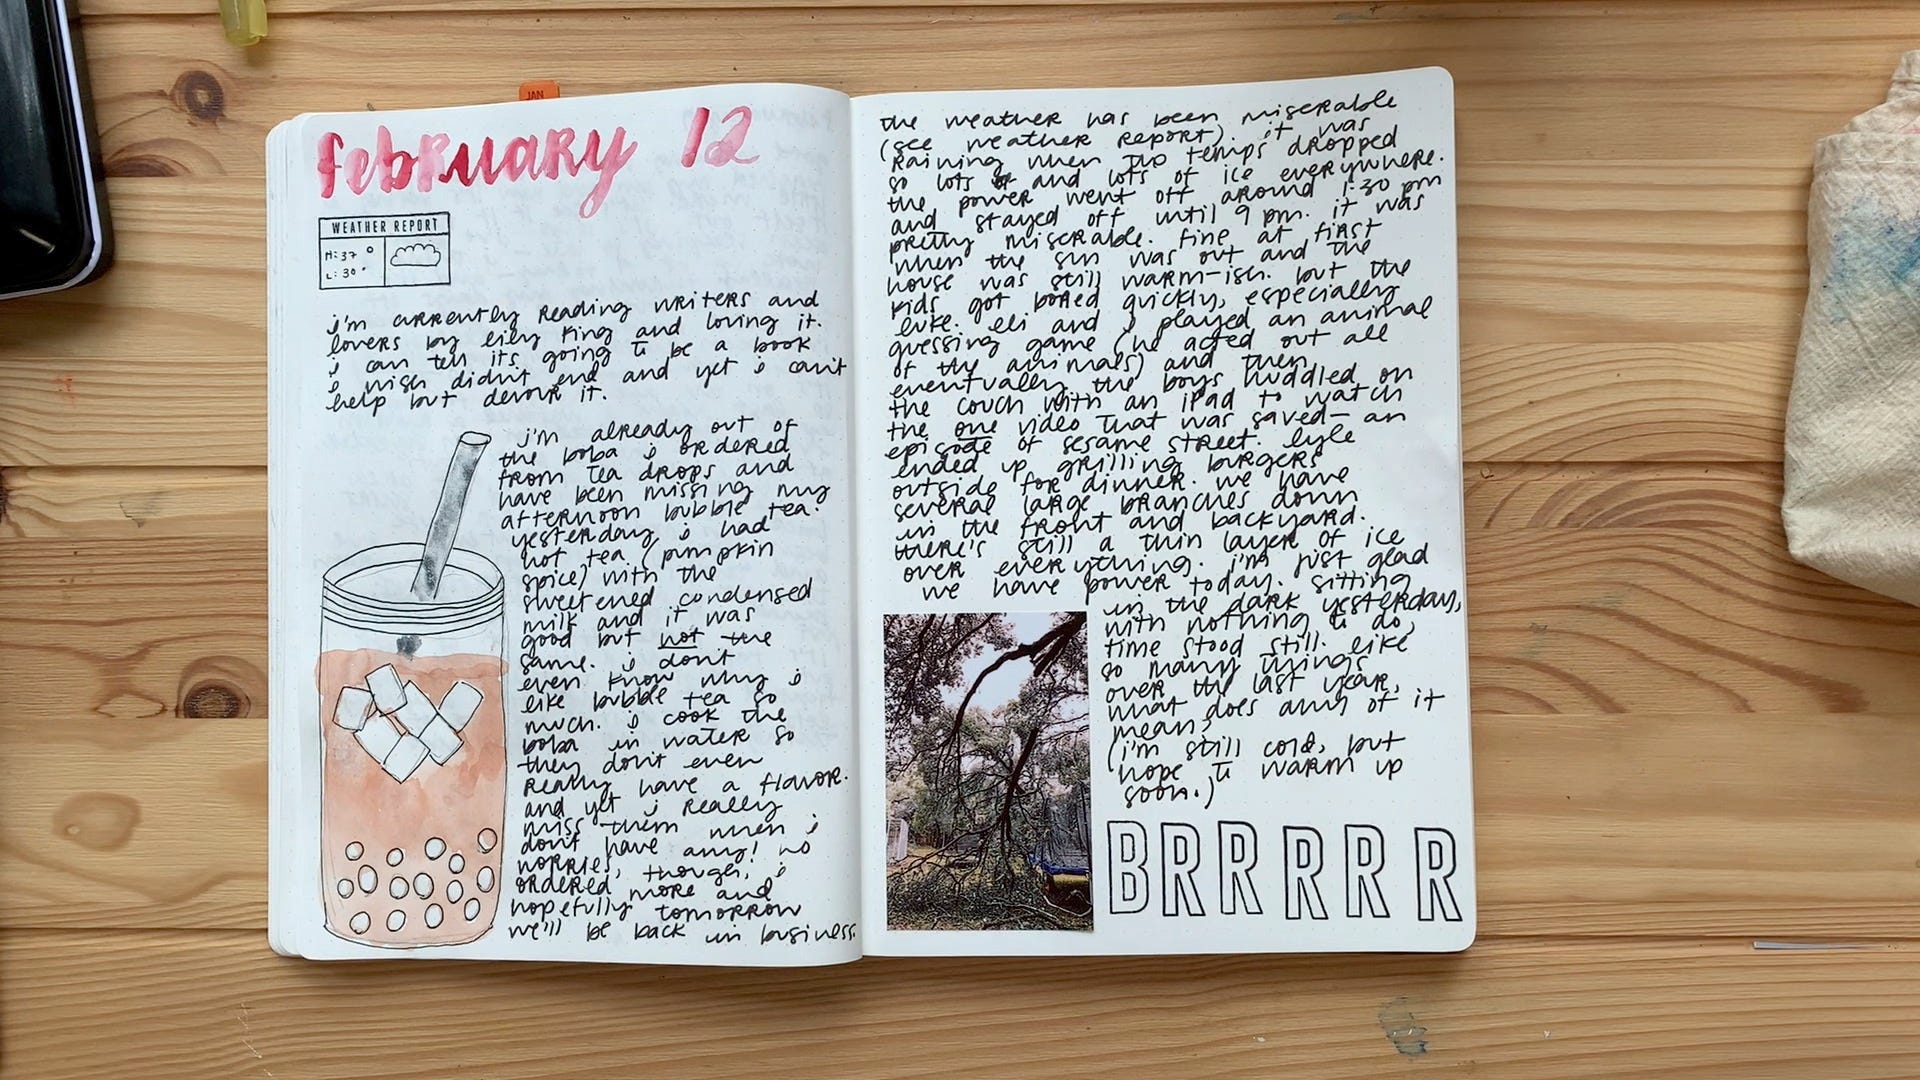 JAN
february 12
WEATHER REPORT
H: 37°
L: 30°
i'm currently reading writers and
lovers by lily king and loving it.
i can tell its going to be a book
i wish didn't end and yet i can't
help but devour it.
i'm already out of
the boba i ordered
from tea drops and
have been missing my
afternoon bubble tea.
yesterday i had
hot tea (pumpkin
spice) with the
sweetened condensed
milk and it was
good but not the
same. i don't
even know why i
like bubble tea so
much. i cook the
boba in water so
they don't even
really have a flavor.
and yet i really
miss them when i
don't have any! no
worries, though, i
ordered more and
hopefully tomorrow
we'll be back in business.
the weather has been miserable
(see weather report). it was
raining when the temps dropped
so lots and lots of ice everywhere.
the power went off around 1:30 pm
and stayed off until 9 pm. it was
pretty miserable. fine at first
when the sun was out and the
house was still warm-ish. but the
kids got bored quickly, especially
luke. eli and i played an animal
guessing game (he acted out all
of the animals) and then
eventually the boys huddled on
the couch with an ipad to watch
the one video that was saved— an
episode of sesame street. lyle
ended up grilling burgers
outside for dinner. we have
several large branches down
in the front and backyard.
there's still a thin layer of ice
over everything. i'm just glad
we have power today. sitting
in the dark yesterday,
with nothing to do,
time stood still. like
so many things
over the last year,
what does any of it
mean?
(i'm still cold, but
hope to warm up
soon.)
BRRRRR